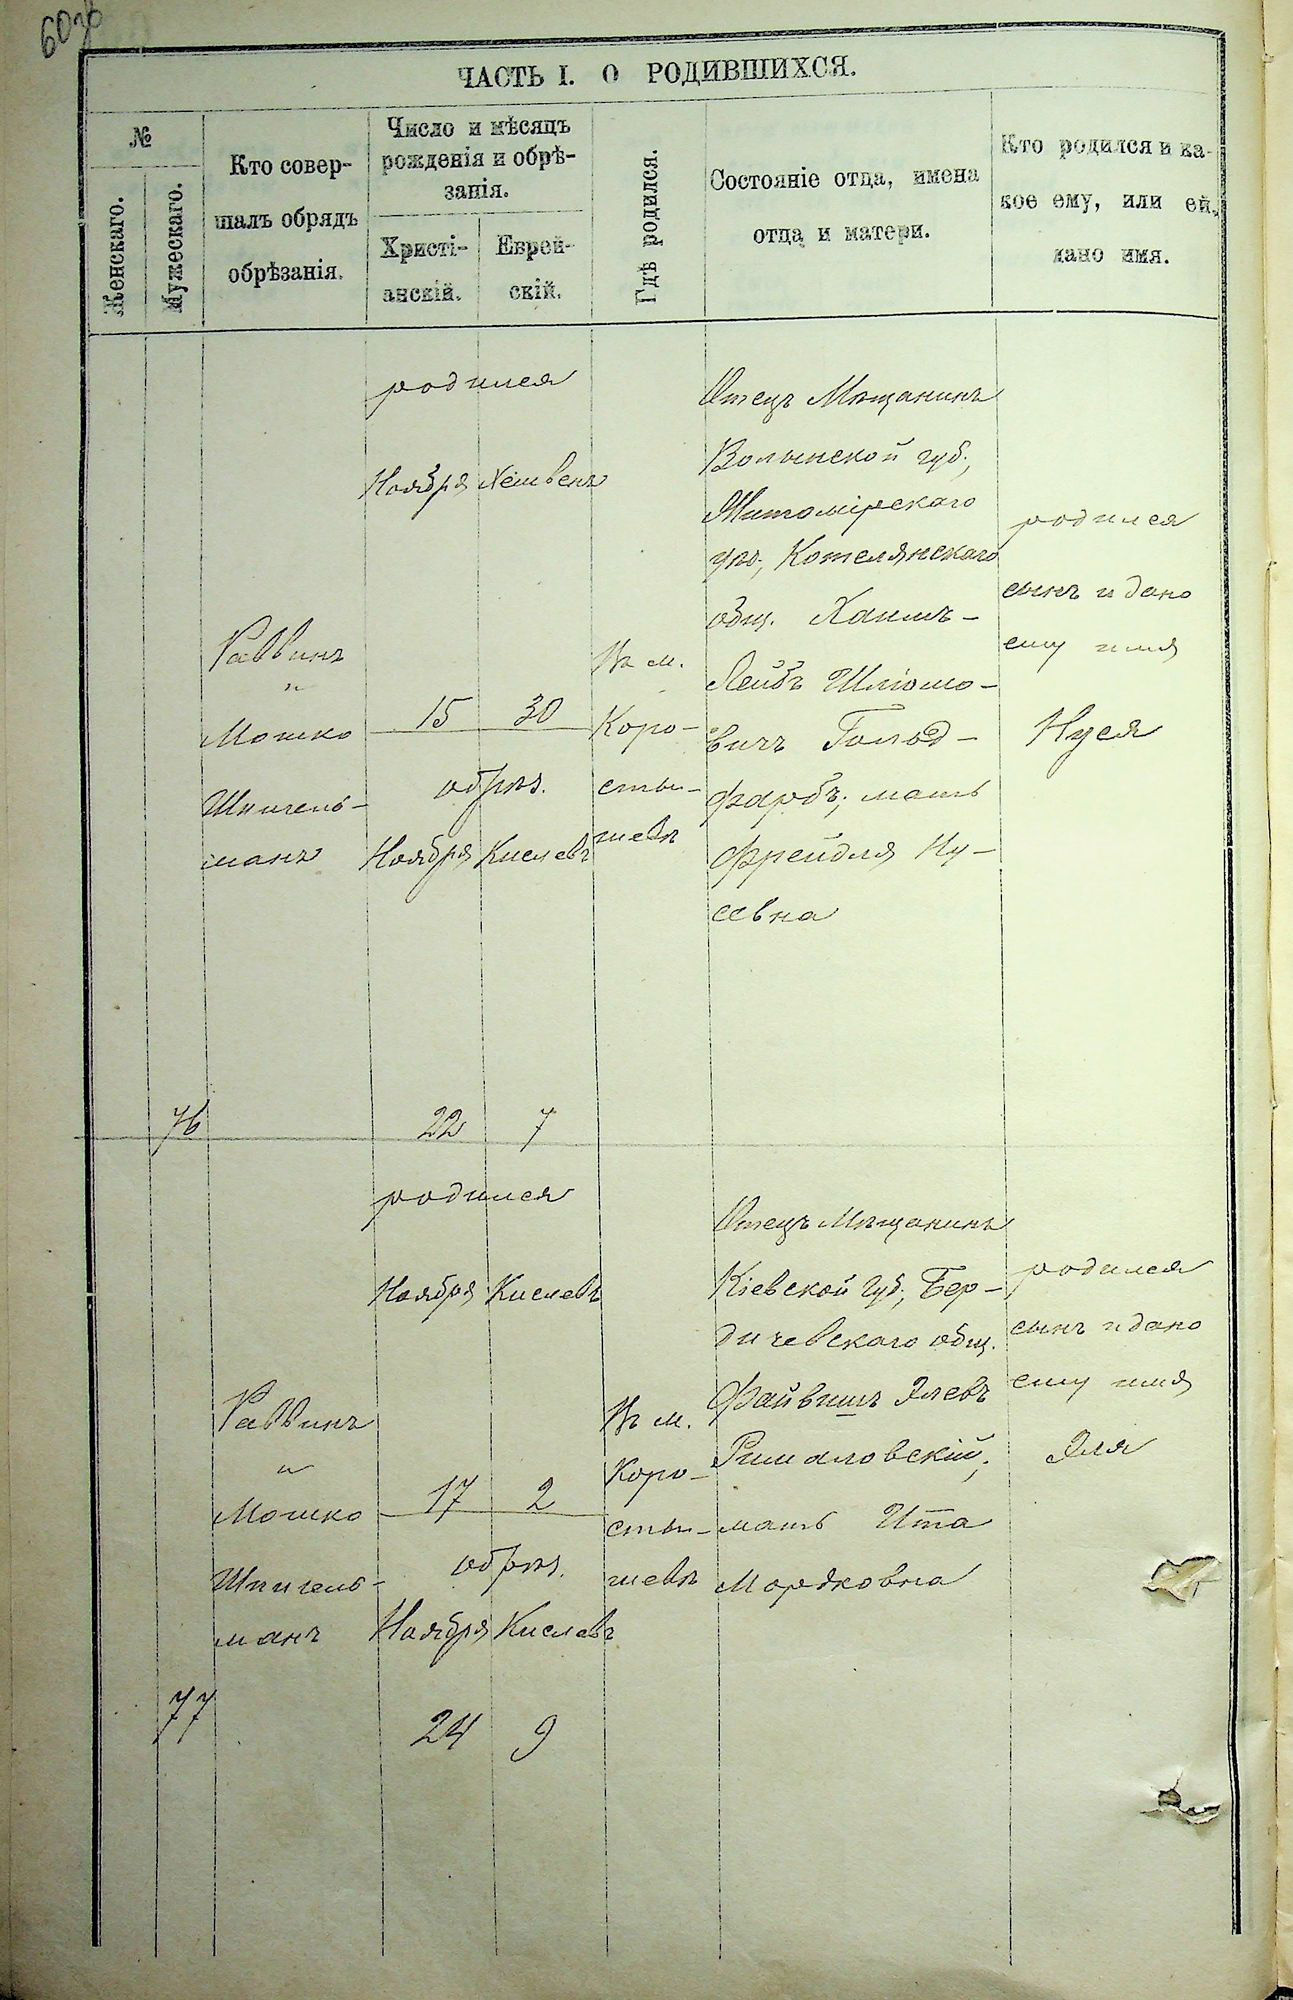 ЧАСТЬ I. О РОДИВШИХСЯ.
№
Женскаго.
Мужескаго.
Кто совер-
шалъ обрядъ
обрѣзанія.
Число и мѣсяцъ
рожденія и обрѣ-
занія.
Христі-
анскій.
Еврей-
скій.
Гдѣ родился.
Состояніе отца, имена
отца и матери.
Кто родился и ка-
кое ему, или ей,
дано имя.
76
Раввинъ
и
Мошко
Шпигель-
манъ
родился
Ноября Хешвенъ
15 30
обрѣз.
Ноября Кислевъ
22 7
Въ м.
Коро-
сты-
шевѣ
Отецъ Мѣщанинъ
Волынской губ.,
Житомірскаго
уѣз., Котелянскаго
общ. Хаимъ-
Лейбъ Шліомо-
вичъ Гольд-
фарбъ; мать
Фрейдля Ну-
севна
родился
сынъ и дано
ему имя
Нуся
77
Раввинъ
и
Мошко
Шпигель-
манъ
родился
Ноября Кислевъ
17 2
обрѣз.
Ноября Кислевъ
24 9
Въ м.
Коро-
сты-
шевѣ
Отецъ Мѣщанинъ
Кіевской губ., Бер-
дичевскаго общ.
Файвишъ Элевъ
Рималовскій,
мать Ита
Мордковна
родился
сынъ и дано
ему имя
Эля